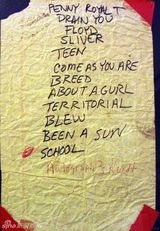 PENNY ROYAL T
DRAIN YOU
FLOYD
SLIVER
TEEN
COME AS YOU ARE
BREED
ABOUT A GURL
TERRITORIAL
BLEW
BEEN A SUN
SCHOOL